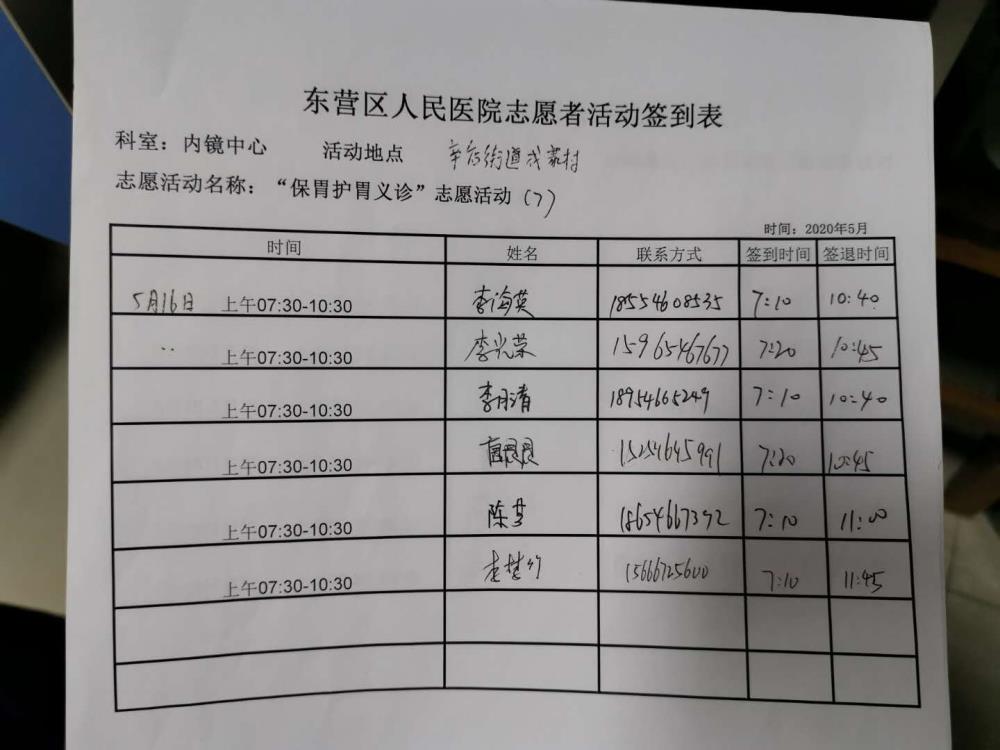 东营区人民医院志愿者活动签到表
科室：内镜中心 活动地点 辛店街道戎家村
志愿活动名称：“保胃护胃义诊”志愿活动（7）
时间：2020年5月
时间 姓名 联系方式 签到时间 签退时间
5月16日 上午07:30-10:30 李海英 18554608535 7:10 10:40
.. 上午07:30-10:30 李光荣 15965467677 7:20 10:45
上午07:30-10:30 李月清 18954665249 7:10 10:40
上午07:30-10:30 15254645991 7:20 10:45
上午07:30-10:30 陈梦 18654667392 7:10 11:00
上午07:30-10:30 15666725600 7:10 11:45